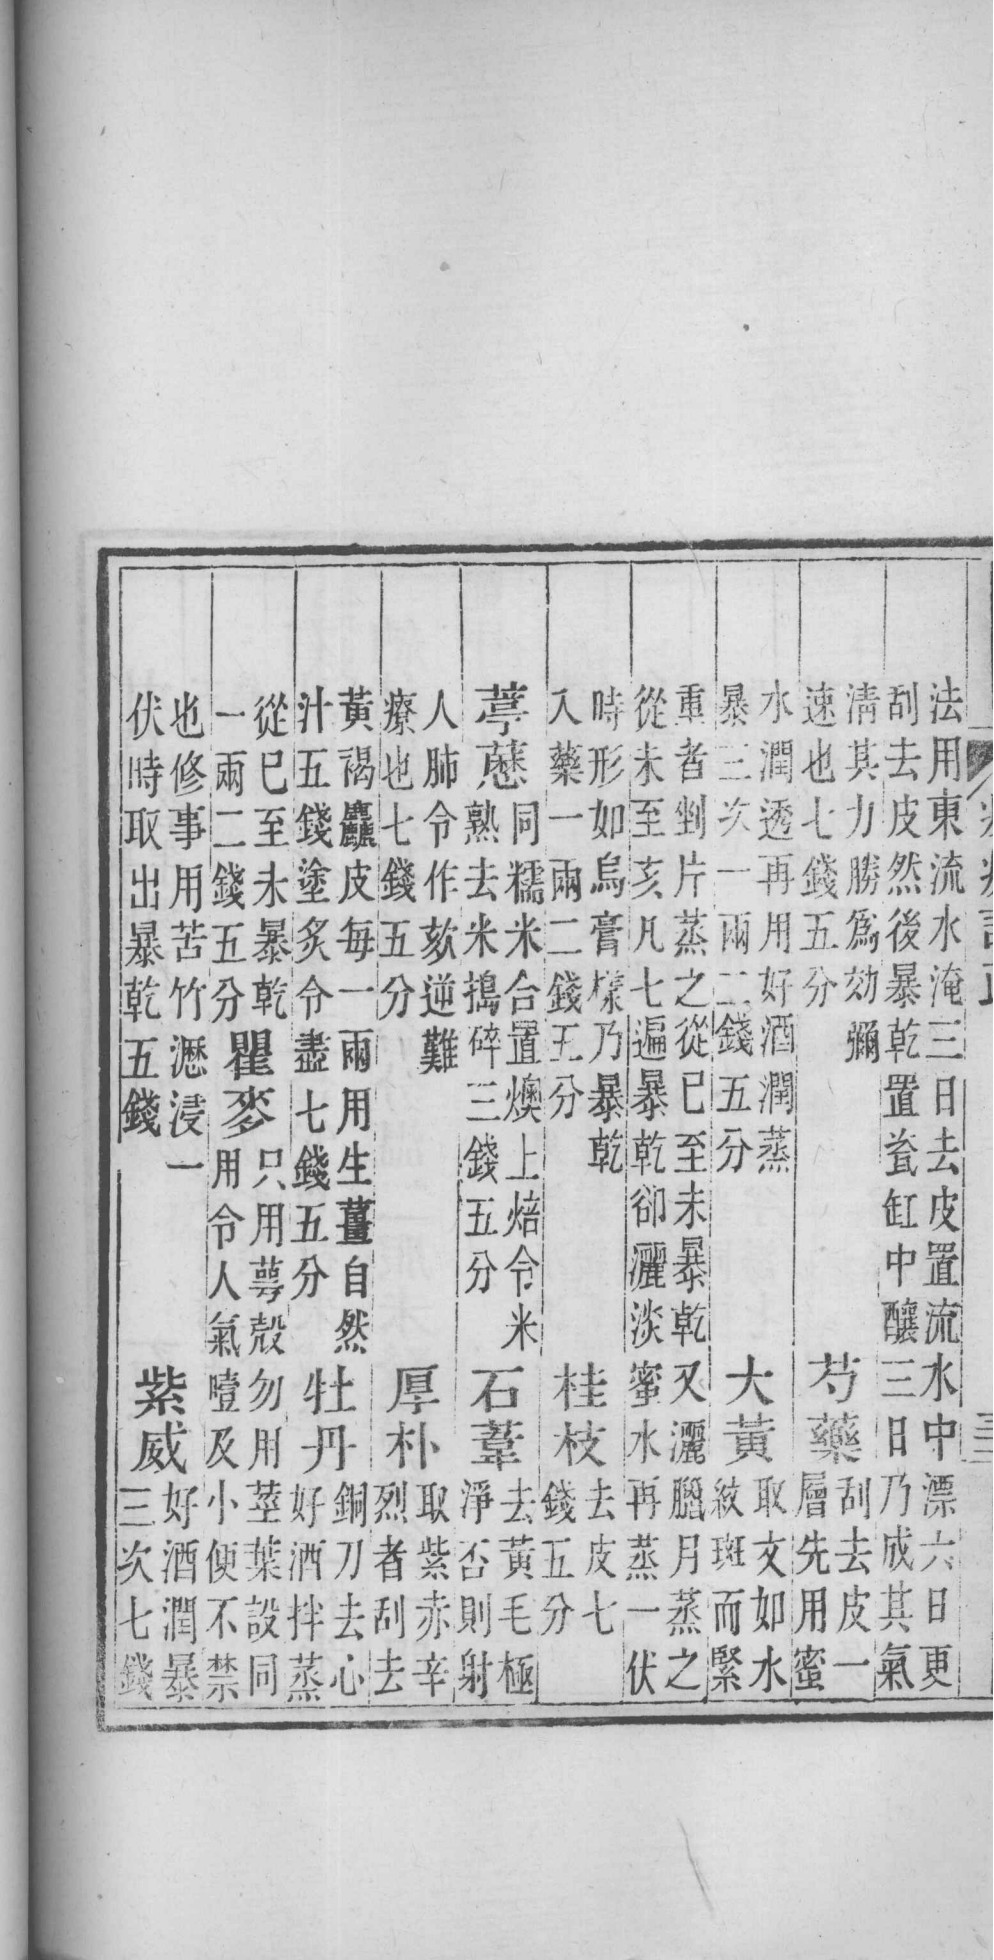 法用東流水淹三日去皮置流水中漂六日更
刮去皮然後暴乾置瓷缸中釀三日乃成其氣
清其力勝爲効彌
速也七錢五分
芍藥
刮去皮一
層先用蜜
水潤透再用好酒潤蒸
暴三次一兩二錢五分
大黃
取文如水
紋斑而緊
重者剉片蒸之從巳至未暴乾又灑臘月蒸之
從未至亥凡七遍暴乾卻灑淡蜜水再蒸一伏
時形如烏膏樣乃暴乾
入藥一兩二錢五分
桂枝
去皮七
錢五分
葶藶
同糯米合置燠上焙令米
熟去米搗碎三錢五分
石葦
去黃毛極
淨否則射
人肺令作欬逆難
療也七錢五分
厚朴
取紫赤辛
烈者刮去
黃褐麤皮每一兩用生薑自然
汁五錢塗炙令盡七錢五分
牡丹
銅刀去心
好酒拌蒸
從巳至未暴乾
一兩二錢五分
瞿麥
只用蕚殼勿用莖葉設同
用令人氣噎及小便不禁
也修事用苦竹瀝浸一
伏時取出暴乾五錢
紫威
好酒潤暴
三次七錢